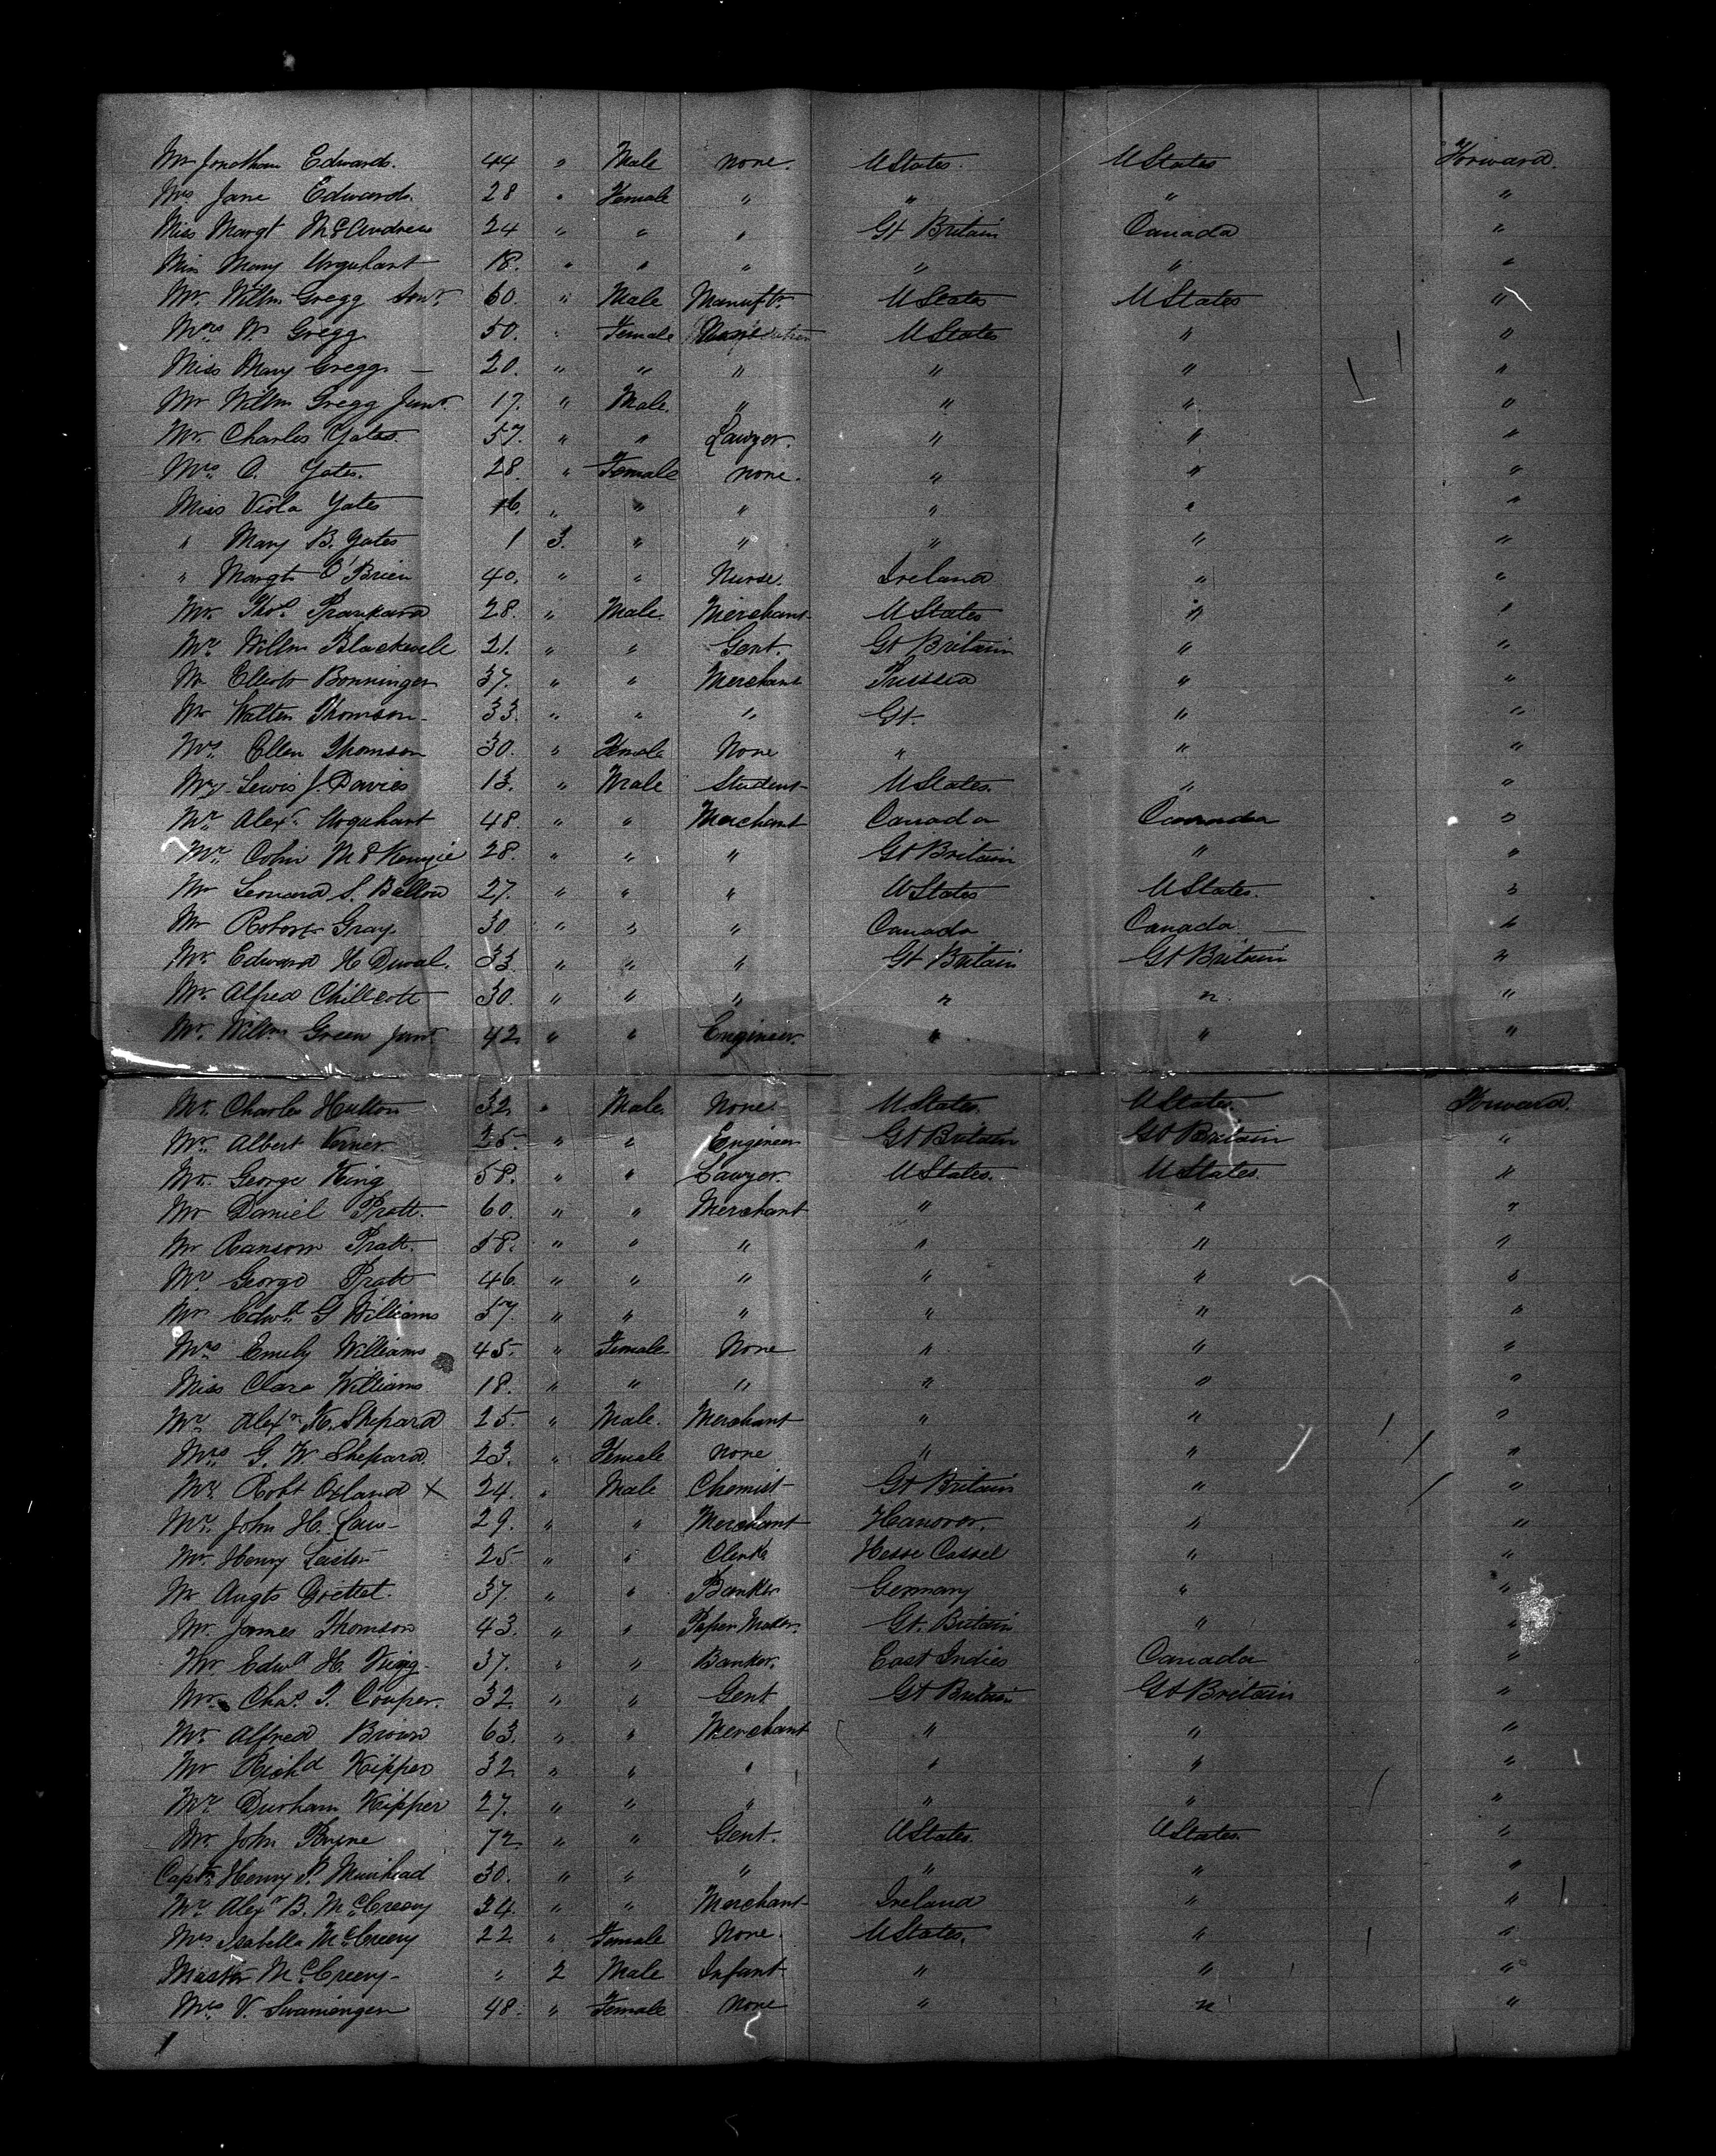 Mr Jonathan Edwards. 44 " Male none. UStates. UStates Forward.
Mrs Jane Edwards. 28 " Female " " " "
Miss Margt McAndrew 24 " " " Gt Britain Canada "
Miss Mary Urquhart 18. " " " " " "
Mr. Willm Gregg Senr. 60. " Male Manuftr. UStates UStates "
Mrs W. Gregg 50. " Female UStates " "
Miss Mary Gregg — 20. " " " " " "
Mr Willm Gregg Junr. 17. " Male. " " " "
Mr. Charles Yates. 57. " " Lawyer. " " "
Mrs C. Yates. 28. " Female none. " " "
Miss Viola Yates 16. " " " " " "
" Mary B. Yates 1 3. " " " " "
" Margt O'Brien 40. " " Nurse. Ireland " "
Mr. Thos. Prankard 28. " Male. Merchant UStates " "
Mr. Willm Blackwell 21. " " Gent. Gt Britain " "
Mr Elliott Bonninger 37. " " Merchant Prussia " "
Mr Walter Thomson 33. " " " Gt. " "
Mrs Ellen Thomson 30. " Female None " " "
Lewis J. Davies 13. " Male Student UStates. " "
Mr. Alexr Urquhart 48. " " Merchant Canada Canada "
Mr. Colin McKenzie 28. " " " Gt Britain " "
Mr Leonard S. Ballou 27. " " " UStates UStates. "
Mr Robert Gray. 30 " " " Canada Canada "
Mr Edward H Duval. 33. " " " Gt Britain Gt Britain "
Mr. Alfred Chillcott 30. " " " " " "
Mr. Willm Green Junr. 42. " " Engineer. " " "
Mr. Charles Hutton 32. " Male. None. UStates. UStates. Forward.
Mr. Albert Verner. 25 " " Engineer Gt Britain Gt Britain "
Mr. George King 58. " " Lawyer. UStates. UStates. "
Mr Daniel Pratt. 60. " " Merchant " " "
Mr Ransom Pratt. 58. " " " " " "
Mr. George Pratt 46. " " " " " "
Mr Edwd. G Williams 57. " " " " " "
Mrs Emily Williams 45. " Female None " " "
Miss Clara Williams 18. " " " " " "
Mr. Alexr H. Shepard 25. " Male. Merchant " " "
Mrs. G. W. Shepard. 23. " Female none " " "
Mr. Robt Oxland X 24. " Male Chemist Gt Britain " "
Mr. John H. Law 29. " " Merchant Hanover. " "
Mr. Henry 25 " " Clerk Hesse Cassel " "
Mr Augts 37. " " Banker Germany " "
Mr. James Thomson 43. " " Paper Maker. Gt. Britain " "
Mr Edwd H. King. 37. " " Banker. East Indies Canada "
Mr. Chas. T. Couper. 32. " " Gent Gt Britain Gt Britain "
Mr. Alfred Brown 63. " " Merchant " " "
Mr Richd Kipper 32 " " " " " "
Mr. Durham Kipper 27. " " " " " "
Mr. John Pryne 72 " " Gent. UStates. UStates. "
Captn Henry P. Muirhead 30. " " " " " "
Mr. Alexr B. McCreery 34. " " Merchant Ireland " "
Mrs Isabella McCreery 22. " Female None. UStates. " "
Master McCreery " 2 Male Infant " " "
Mrs V. 48. " Female None " " "